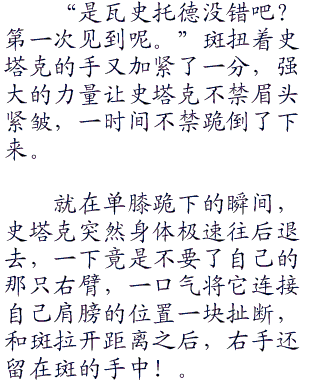 “是瓦史托德没错吧？
第一次见到呢。”斑扭着史
塔克的手又加紧了一分，强
大的力量让史塔克不禁眉头
紧皱，一时间不禁跪倒了下
来。
就在单膝跪下的瞬间，
史塔克突然身体极速往后退
去，一下竟是不要了自己的
那只右臂，一口气将它连接
自己肩膀的位置一块扯断，
和斑拉开距离之后，右手还
留在斑的手中！。